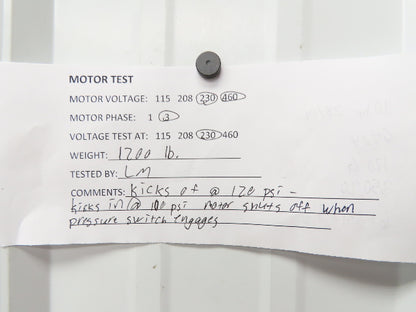 MOTOR TEST
MOTOR VOLTAGE: 115 208 230 460
MOTOR PHASE: 1 3
VOLTAGE TEST AT: 115 208 230 460
WEIGHT: 1200 lb.
TESTED BY: LM
COMMENTS: kicks of @ 120 psi -
kicks in @ 100 psi motor shuts off when
pressure switch engages